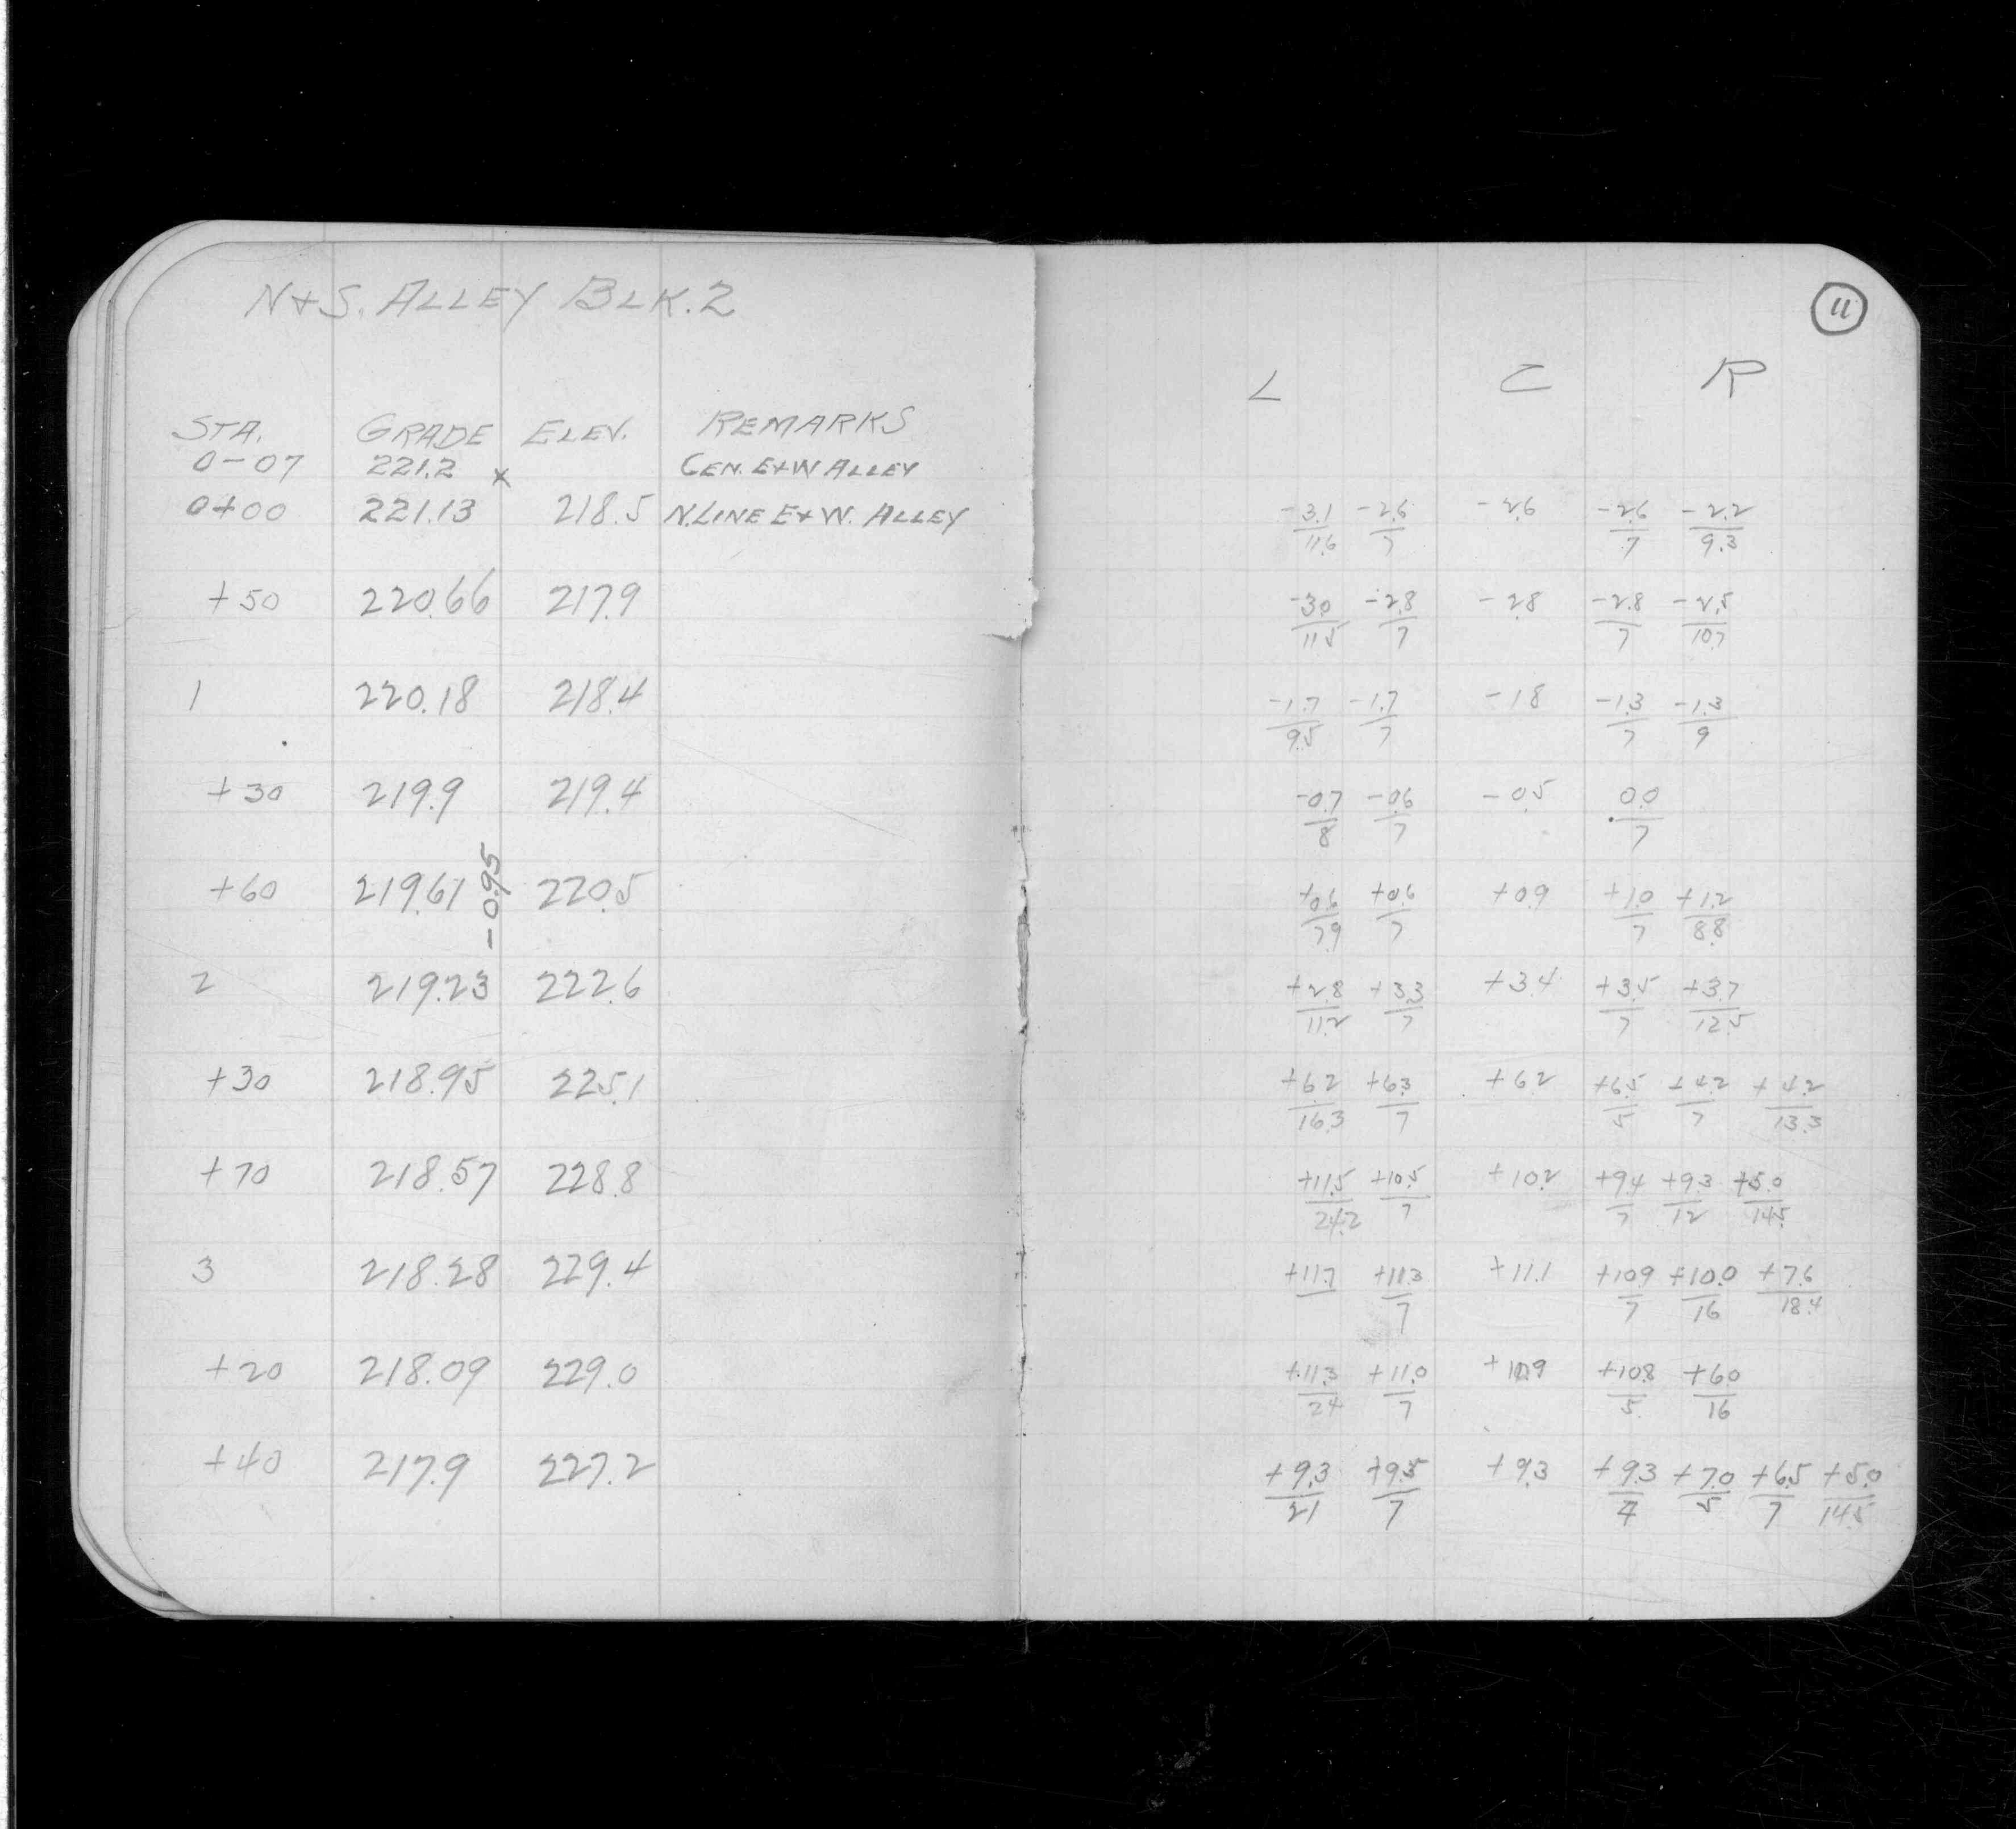 N+S. ALLEY BLK. 2
STA. GRADE ELEV. REMARKS
0-07 221.2 x CEN. E+W ALLEY
0+00 221.13 218.5 N.LINE E+W. ALLEY
+50 220.66 217.9
1 220.18 218.4
+30 219.9 219.4
-0.95
+60 219.61 220.5
2 219.23 222.6
+30 218.95 225.1
+70 218.57 228.8
3 218.28 229.4
+20 218.09 229.0
+40 217.9 227.2
11
L C R
-3.1 -2.6 -2.6 -2.6 -2.2
11.6 7 7 9.3
-3.0 -2.8 -2.8 -2.8 -2.5
11.5 7 7 10.7
-1.7 -1.7 -1.8 -1.3 -1.3
9.5 7 7 9
-0.7 -0.6 -0.5 0.0
8 7 7
+0.6 +0.6 +0.9 +1.0 +1.2
7.9 7 7 8.8
+2.8 +3.3 +3.4 +3.5 +3.7
11.2 7 7 12.5
+6.2 +6.3 +6.2 +6.5 +4.2 +4.2
16.3 7 5 7 13.3
+11.5 +10.5 +10.2 +9.4 +9.3 +5.0
24.2 7 7 12 14.5
+11.7 +11.3 +11.1 +10.9 +10.0 +7.6
7 7 16 18.4
+11.3 +11.0 +10.9 +10.8 +6.0
24 7 5 16
+9.3 +9.5 +9.3 +9.3 +7.0 +6.5 +5.0
21 7 4 5 7 14.5